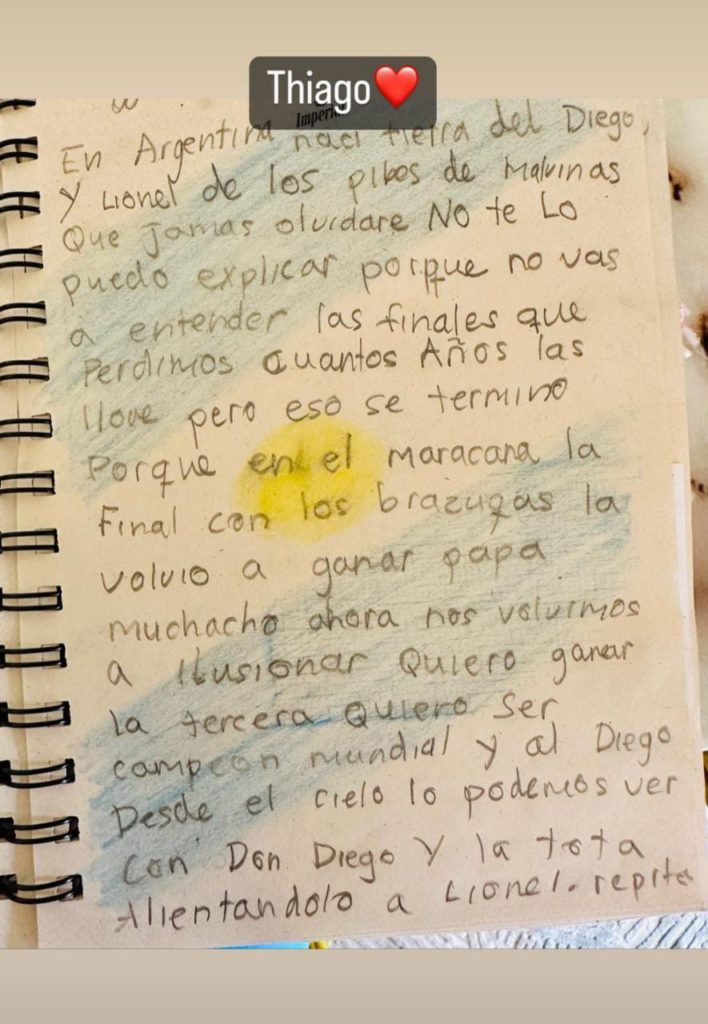 Thiago❤️
Imperi
En Argentina naci tierra del Diego,
y Lionel de los pibes de Malvinas
Que jamas olvidare No te Lo
puedo explicar porque no vas
a entender las finales que
Perdimos cuantos Años las
llore pero eso se termino
Porque en el maracana la
Final con los brazuqas la
volvio a ganar papa
muchacho ahora nos volvimos
a ilusionar Quiero ganar
la tercera Quiero Ser
campeon mundial y al Diego
Desde el cielo lo podemos ver
Con Don Diego Y la tota
Alientandolo a Lionel. repite